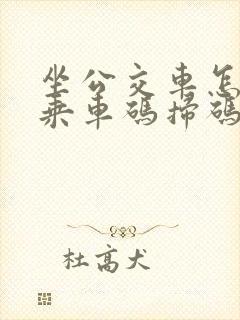 坐公交車怎
乘車碼掃碼
杜高犬